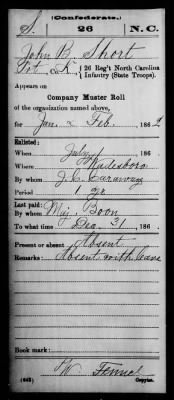 (Confederate.)
S. 26 N.C.
John B. Short
Pvt, Co. K, 26 Reg't North Carolina
Infantry (State Troops).
Appears on
Company Muster Roll
of the organization named above,
for Jan & Feb, 1862
Enlisted:
When July 1, 186
Where Wadesboro
By whom J. C. Caraway
Period 1 yr
Last paid:
By whom Maj. Boon
To what time Dec. 31, 186
Present or absent Absent
Remarks: Absent with leave
Book mark:
(642) Fennel
Copyist.